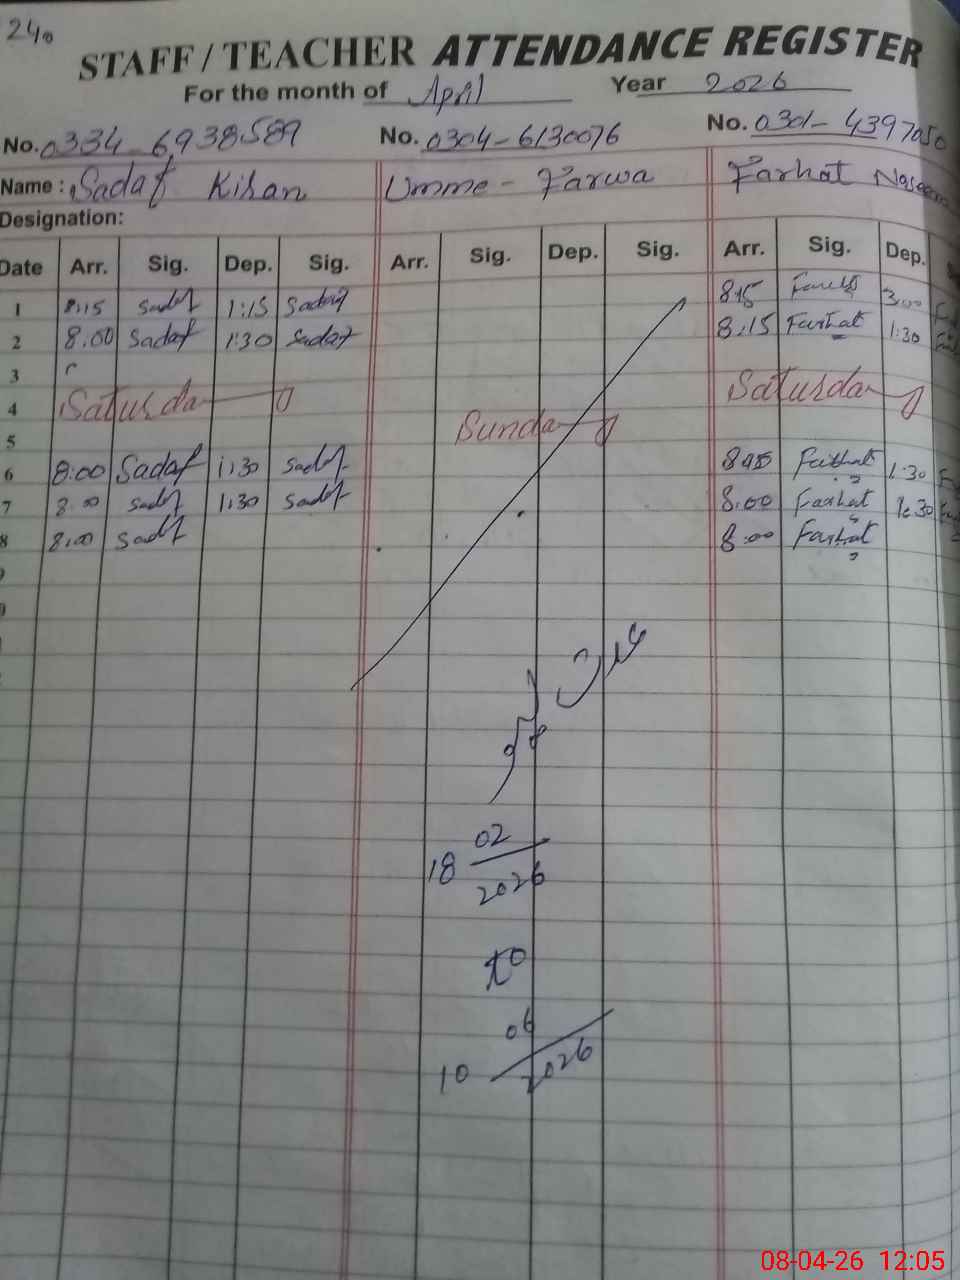 240
STAFF / TEACHER ATTENDANCE REGISTER
For the month of April Year 2026
No. 0334-6938589 No. 0304-6130076 No. 0301-4397050
Name: Sadaf Kiran Umme-Farwa Farhat Naseem
Designation:
Date Arr. Sig. Dep. Sig. Arr. Sig. Dep. Sig. Arr. Sig. Dep.
1 8:15 Sadaf 1:15 Sadaf 8:15 Farhat 3:00
2 8:00 Sadaf 1:30 Sadaf 8:15 Farhat 1:30
3
4 Saturday Saturday
5 Sunday
6 8:00 Sadaf 1:30 Sadaf 8:15 Farhat 1:30
7 8:00 Sadaf 1:30 Sadaf 8:00 Farhat 1:30
8 8:00 Sadaf 8:00 Farhat
18 02
2026
to
10 06
2026
08-04-26 12:05